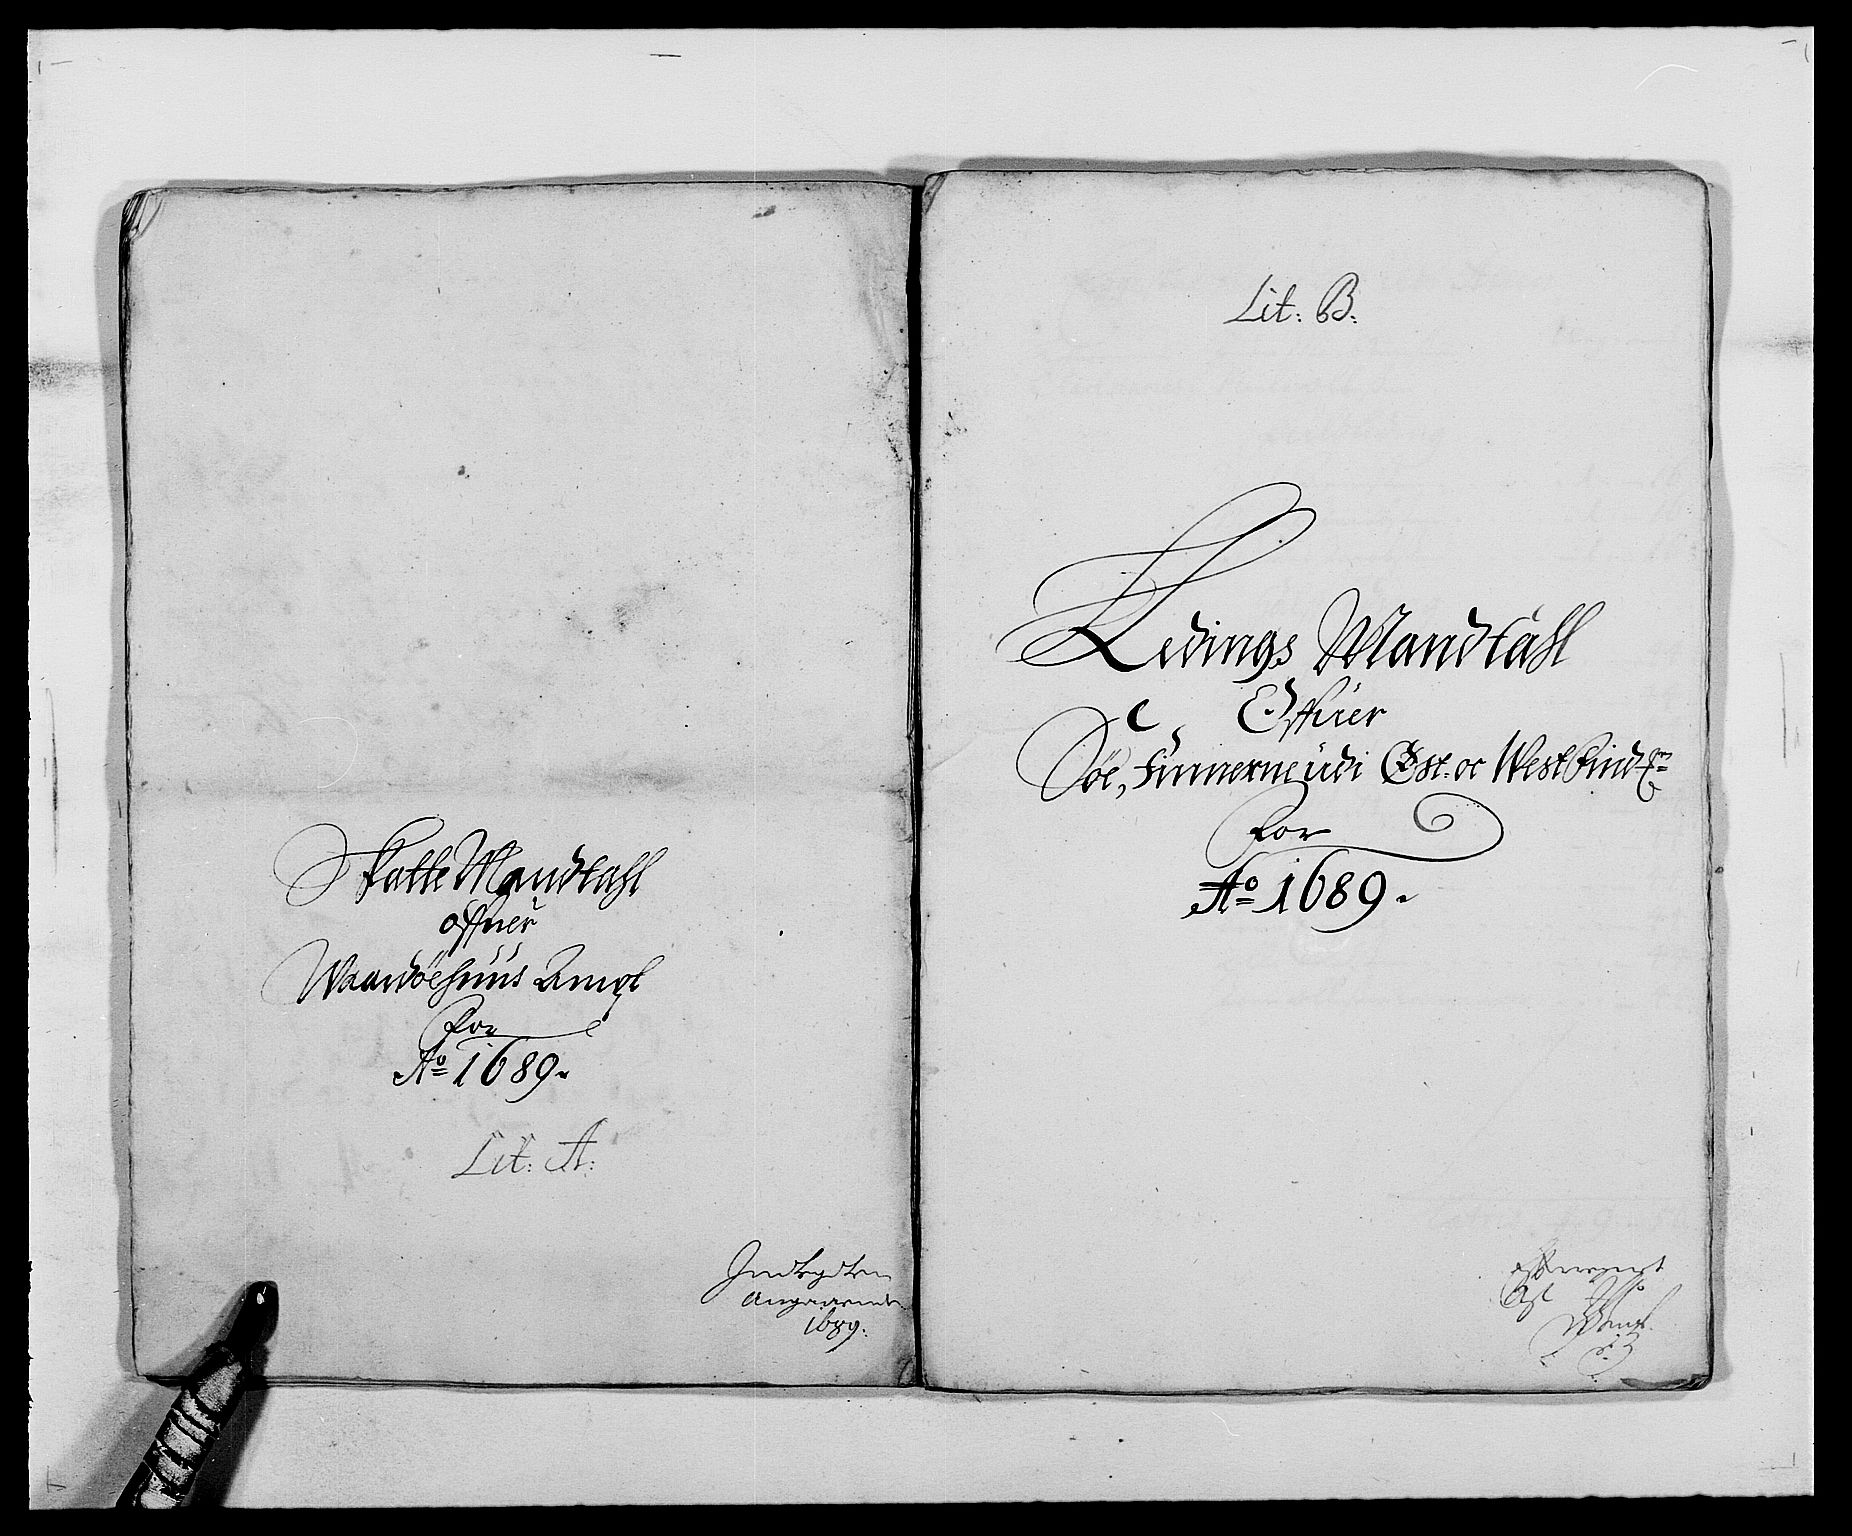 Skatte Mandtahl
offuer
Waardøehuus Ampt
for
Ao 1689.
Lit: A:
Indtegten
Angaaende
1689:
Lit: B:
Ledings Mandtahl
Offuer
Søe, Finnerne udi Øst. oc West find
for
Ao 1689.